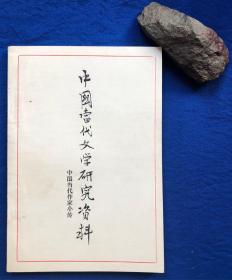 中國當代文学研究资料
中国当代作家小传